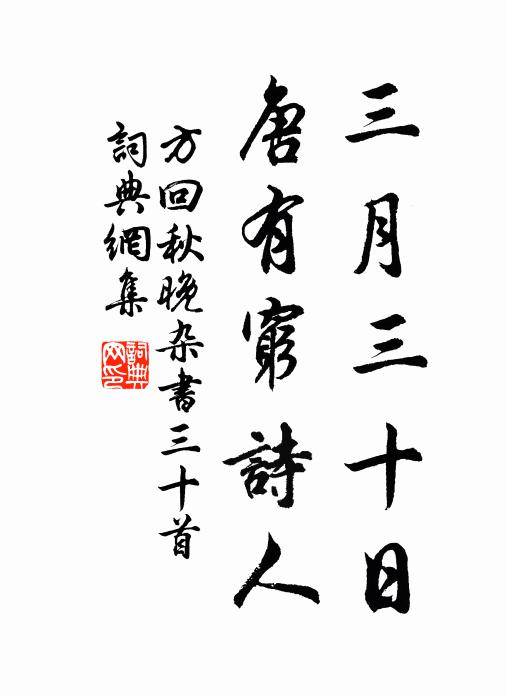 三月三十日
唐有窮詩人
方回秋晚杂書三十首
詞典網集
詞典網印